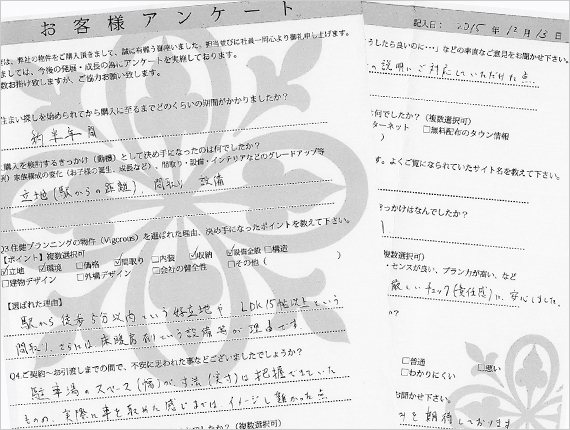 お客様アンケート
は、弊社の物件をご購入頂きまして、誠に有難う御座いました。担当並びに社員一同心より御礼申し上げます。
ましては、今後の発展・成長の為にアンケートを実施しております。
数お掛け致しますが、ご協力お願い致します。
住まい探しを始められてから購入に至るまでどのくらいの期間がかかりましたか?
約半年間
購入を検討するきっかけ(動機)として決め手になったのは何でしたか?
家族構成の変化(お子様の誕生、成長など)、間取り・設備・インテリアなどのグレードアップ等
立地(駅からの距離) 間取り 設備
Q3.住健プランニングの物件(Vigorous)を選ばれた理由、決め手になったポイントを教えて下さい。
【ポイント】複数選択可
☑立地 ☑環境 □価格 ☑間取り □内装 ☑収納 ☑設備全般 □構造
□建物デザイン □外構デザイン □会社の健全性 □その他( )
【選ばれた理由】
駅から徒歩5分以内という好立地や LDK15帖以上という
間取り、さらには床暖房という設備等が理由です
Q4.ご契約~お引渡しまでの間で、不安に思われた事などございましたでしょうか?
駐車場のスペース(幅)が、寸法(実寸)は把握できていた
ものの、実際に車を駐めた感じまではイメージし難かった点
(複数選択可)
記入日: 2015年 12月 13日
うしたら良いのに・・・」などの率直なご意見をお聞かせ下さい。
の説明にご対応していただけた点
は何でしたか?(複数選択可)
ターネット □無料配布のタウン情報
)
す。よくご覧になられていたサイト名を教えて下さい。
きっかけはなんでしたか?
複数選択可)
・センスが良い、プラン力が高い、など
厳しいチェック(責任感)に、安心しました。
か?
□普通 □悪い
□わかりにくい
お聞かせ下さい。
を期待しております